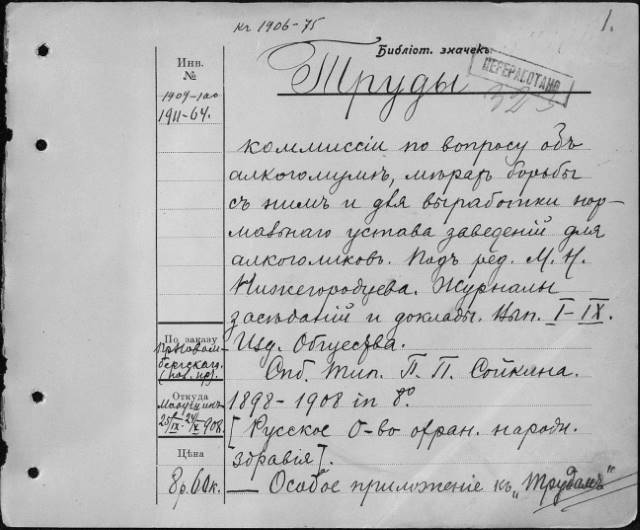 Кг 1906-75
1.
Библіот. значекъ
ПЕРЕРАБОТАНО
Инв.
№
1907-100
1911-64.
Труды
коммиссіи по вопросу объ
алкоголизмѣ, мѣрахъ борьбы
съ нимъ и для выработки нор-
мальнаго устава заведеній для
алкоголиковъ. Подъ ред. М. Н.
Нижегородцева. Журналы
засѣданій и доклады. Вып. I-IX.
Изд. Общества.
Спб. Тип. П. П. Сойкина.
1898-1908 in 8°.
[Русское О-во охран. народн.
здравія].
— Особое приложеніе къ „Трудамъ"
По заказу
Откуда
25/IX 908.
Цѣна
8 р. 60 к.